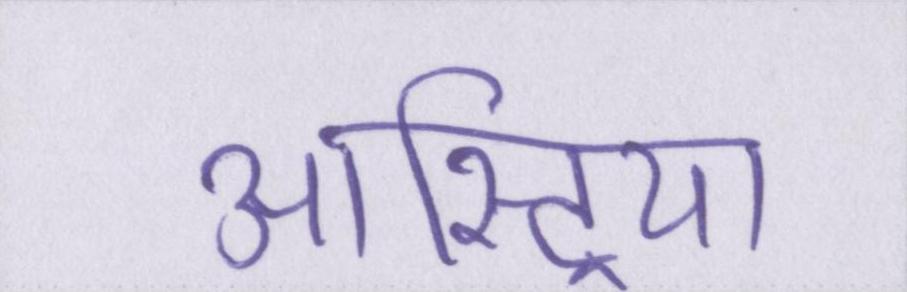 आस्ट्रिया